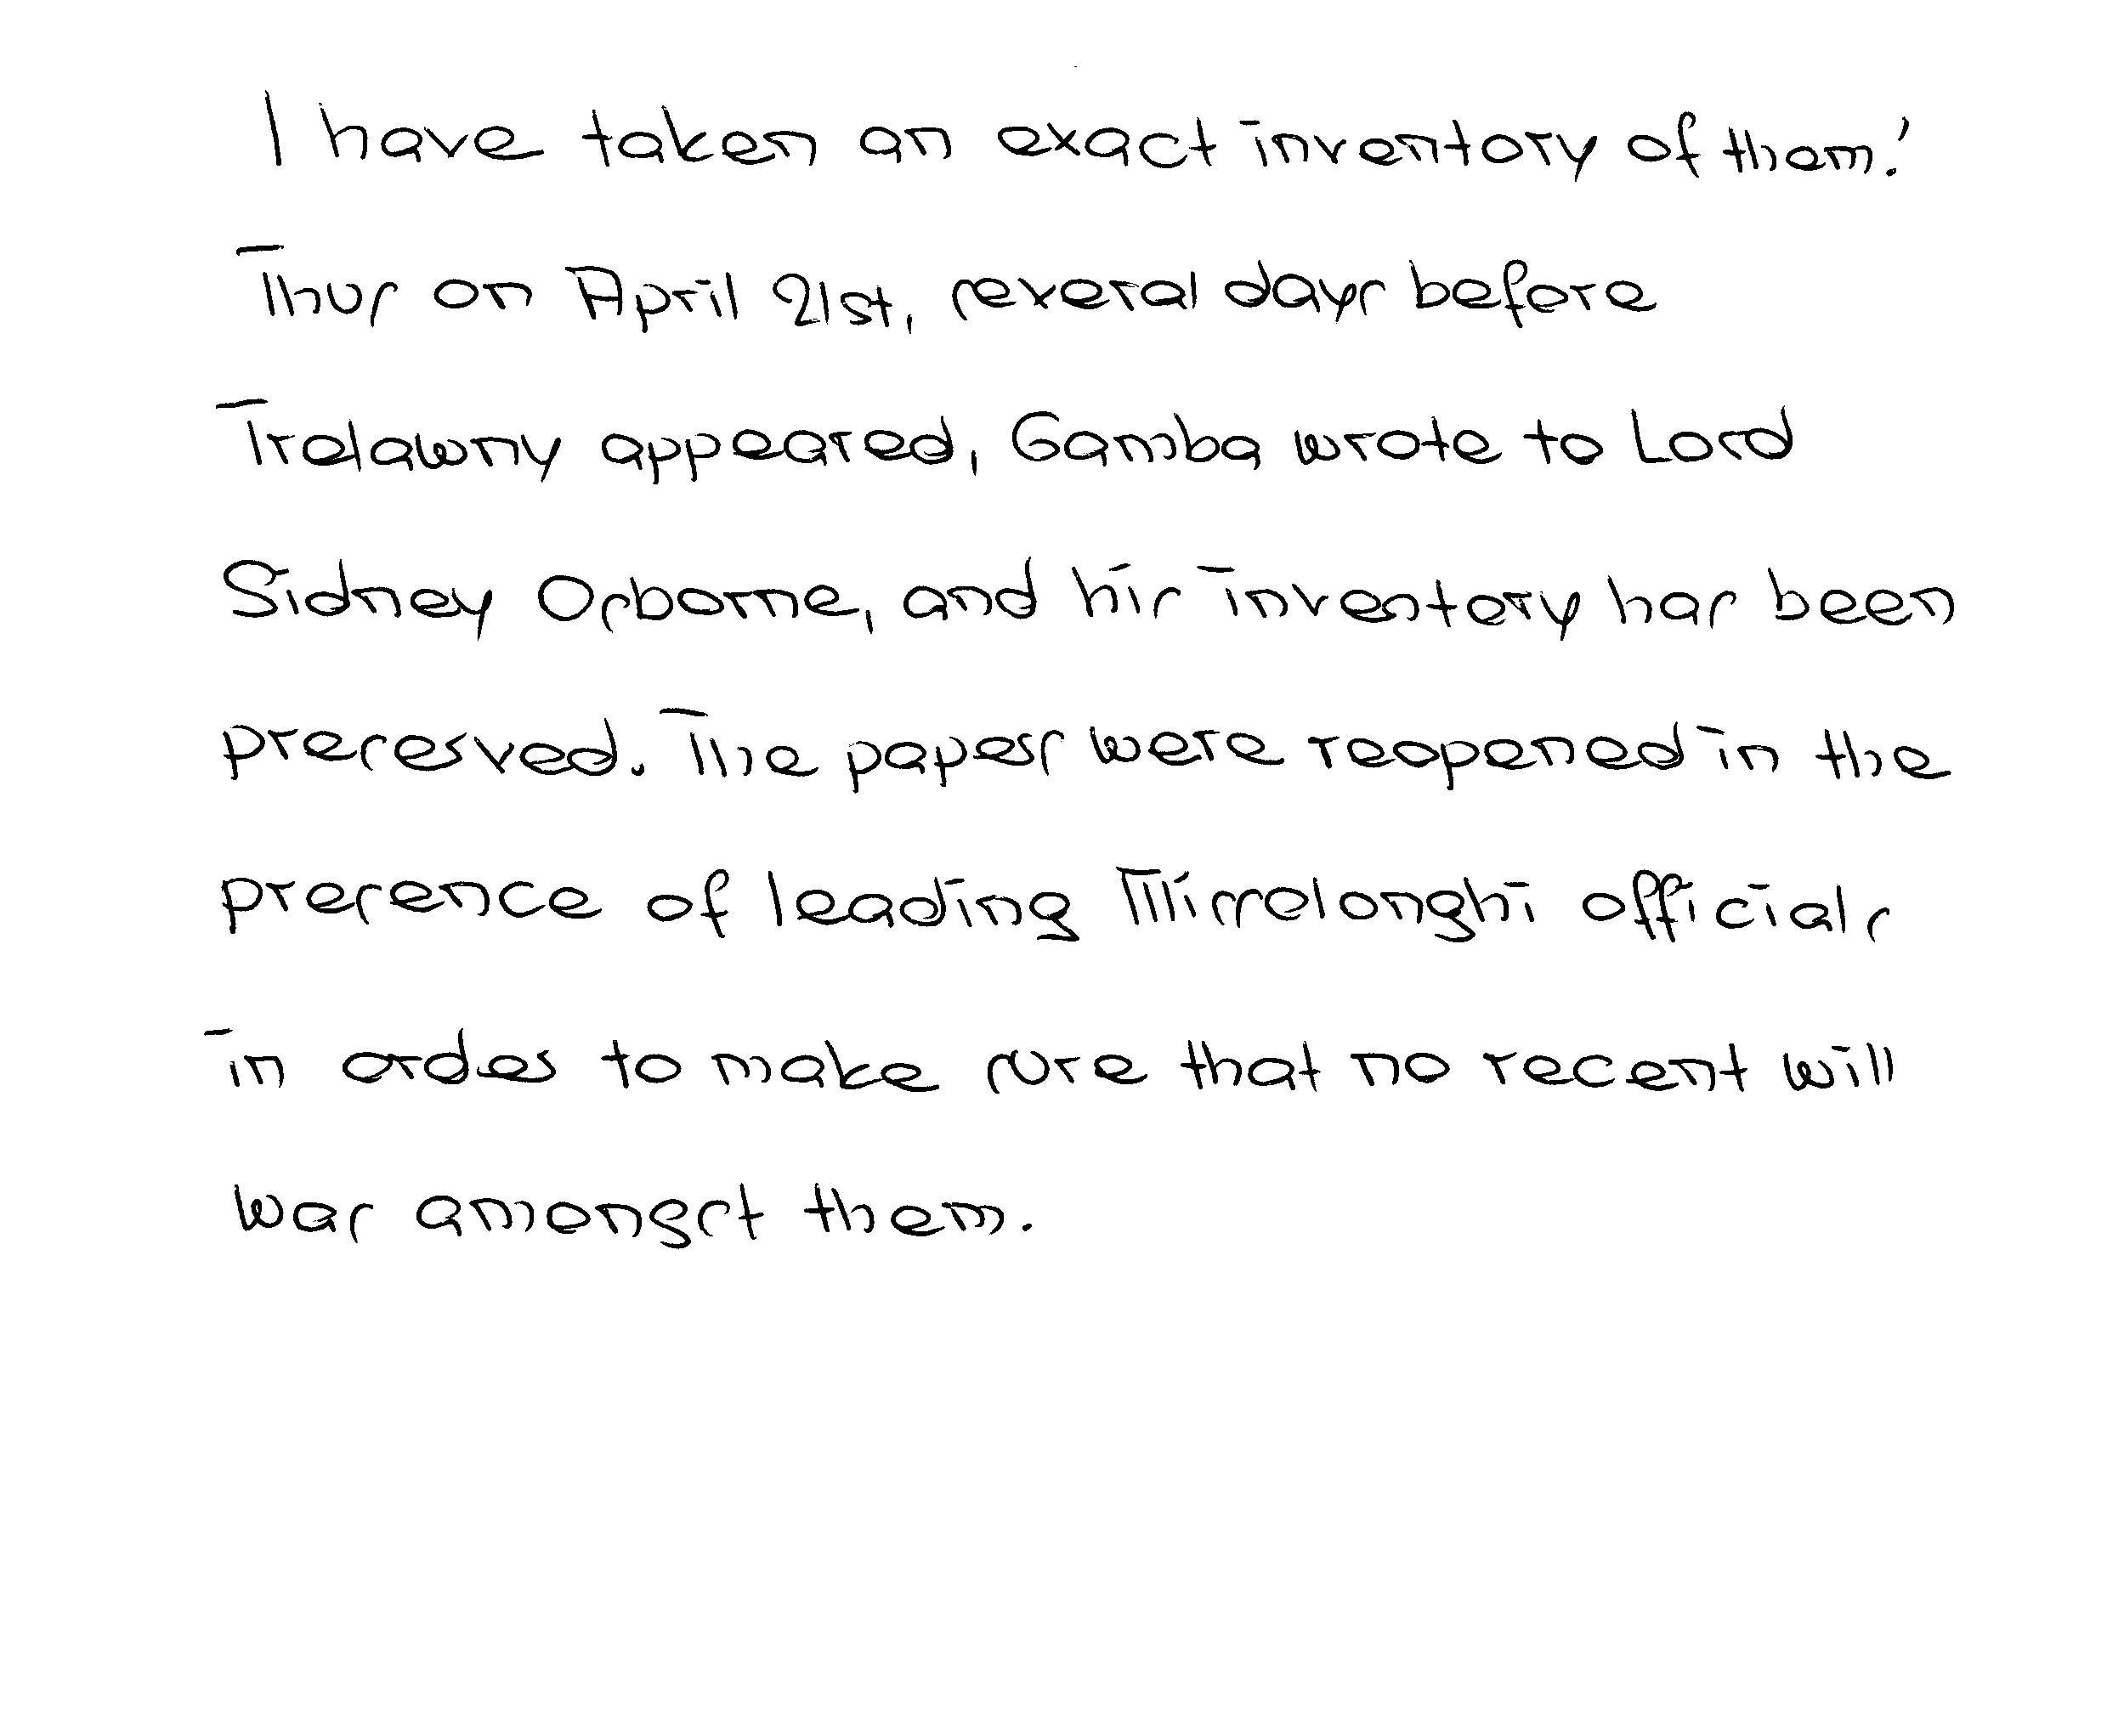 I have taken an exact inventory of them.'
Thus on April 21st, several days before
Trelawny appeared, Gamba wrote to Lord
Sidney Osborne, and his inventory has been
preserved. The papers were reopened in the
presence of leading Missolonghi officials
in order to make sure that no recent will
was amongst them.